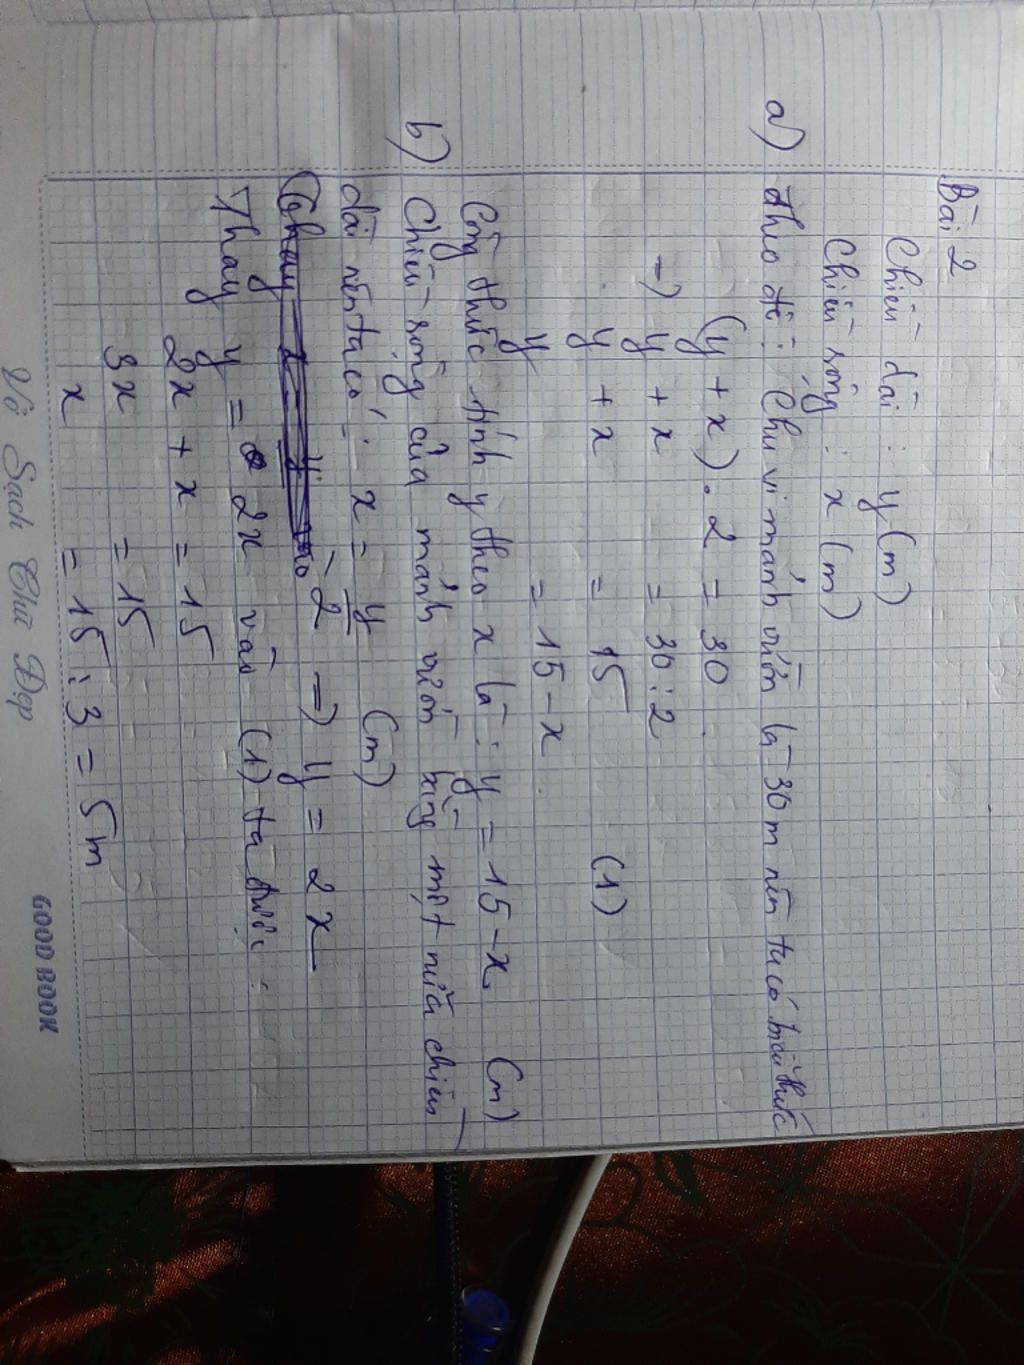 Bài 2
Chiều dài : y (m)
Chiều rộng : x (m)
a) Theo đề : Chu vi mảnh vườn là 30 m nên ta có biểu thức
(y + x) . 2 = 30
=) y + x = 30 : 2
y + x = 15 (1)
y = 15 - x
Công thức tính y theo x là : y = 15 - x (m)
b) Chiều rộng của mảnh vườn bằng một nửa chiều
dài nên ta có : x = y/2 (m)
=) y = 2x
Thay y = 2x vào (1) ta được :
2x + x = 15
3x = 15
x = 15 : 3 = 5 m
Vở Sạch Chữ Đẹp GOOD BOOK